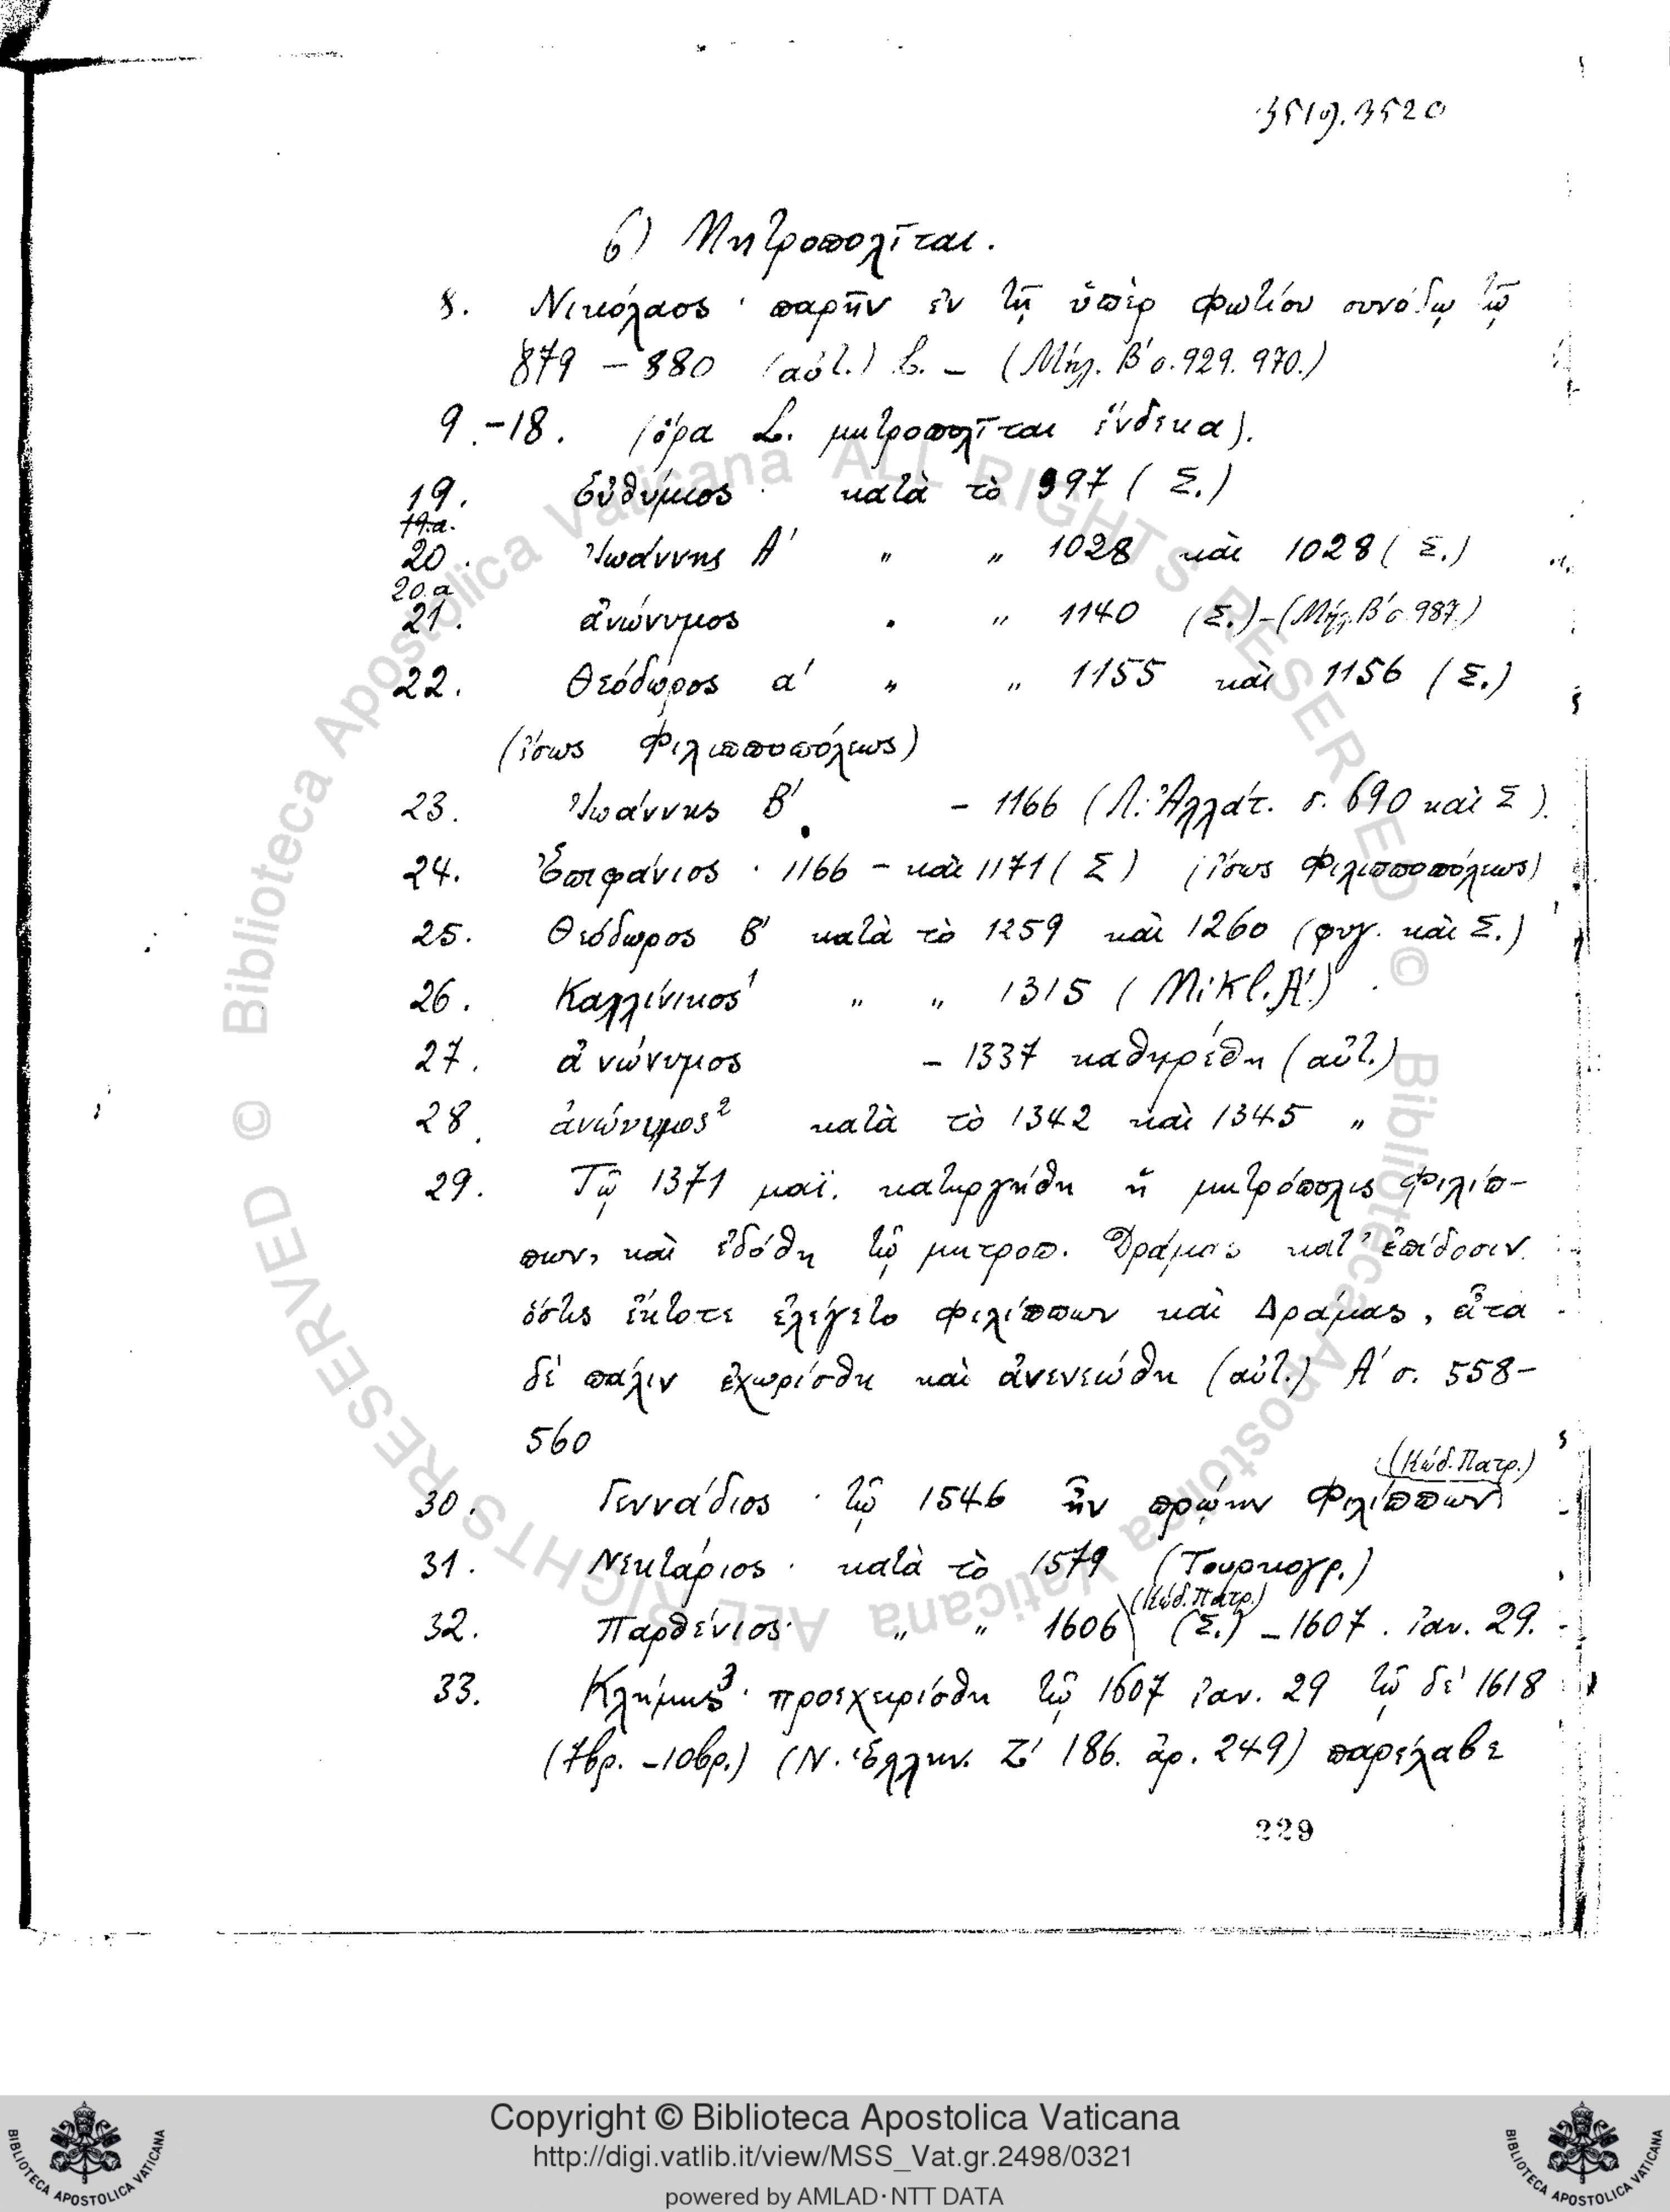 3519.3520
β) Μητροπολῖται.
8. Νικόλαος · παρῆν ἐν τῇ ὑπὲρ Φωτίου συνόδῳ τῷ
879 – 880 (αὐτ.) L. – (Μήλ. Β' σ. 929. 970.)
9.-18. (ὅρα L. μητροπολῖται ἕνδεκα).
19. Εὐθύμιος · κατὰ τὸ 997 (Σ.)
19.α.
20. Ἰωάννης Α' " " 1028 καὶ 1028 (Σ.)
20.α
21. ἀνώνυμος " " 1140 (Σ.) – (Μήλ. Β' σ. 987.)
22. Θεόδωρος α' " " 1155 καὶ 1156 (Σ.)
(ἴσως Φιλιππουπόλεως)
23. Ἰωάννης Β' – 1166 (Λ. Ἀλλάτ. σ. 690 καὶ Σ).
24. Ἐπιφάνιος · 1166 – καὶ 1171 (Σ) (ἴσως Φιλιππουπόλεως)
25. Θεόδωρος Β' κατὰ τὸ 1259 καὶ 1260 (φυγ. καὶ Σ.)
26. Καλλίνικος¹ " " 1315 (Mikl. Α'.)
27. ἀνώνυμος – 1337 καθῃρέθη (αὐτ.)
28. ἀνώνυμος² κατὰ τὸ 1342 καὶ 1345 "
29. Τῷ 1371 μαΐ. κατηργήθη ἡ μητρόπολις Φιλίπ-
πων, καὶ ἐδόθη τῷ μητροπ. Δράμας κατ' ἐπίδοσιν
ὅστις ἔκτοτε ἐλέγετο Φιλίππων καὶ Δράμας, εἶτα
δὲ πάλιν ἐχωρίσθη καὶ ἀνενεώθη (αὐτ.) Α' σ. 558-
560
(Κώδ. Πατρ.)
30. Γεννάδιος · τῷ 1546 ἦν πρώην Φιλίππων
31. Νεκτάριος · κατὰ τὸ 1579 (Τουρκογρ.)
(Κώδ. Πατρ.)
32. Παρθένιος · " " 1606 (Σ.) – 1607 . ἰαν. 29.
33. Κλήμης³ · προεχειρίσθη τῷ 1607 ἰαν. 29 τῷ δὲ 1618
(7βρ. – 10βρ.) (Ν. Ἑλλην. Ζ' 186. ἀρ. 249) παρέλαβε
229
© Biblioteca Apostolica Vaticana ALL RIGHTS RESERVED © Biblioteca Apostolica Vaticana ALL RIGHTS RESERVED
Copyright © Biblioteca Apostolica Vaticana
http://digi.vatlib.it/view/MSS_Vat.gr.2498/0321
powered by AMLAD·NTT DATA
BIBLIOTECA APOSTOLICA VATICANA
BIBLIOTECA APOSTOLICA VATICANA